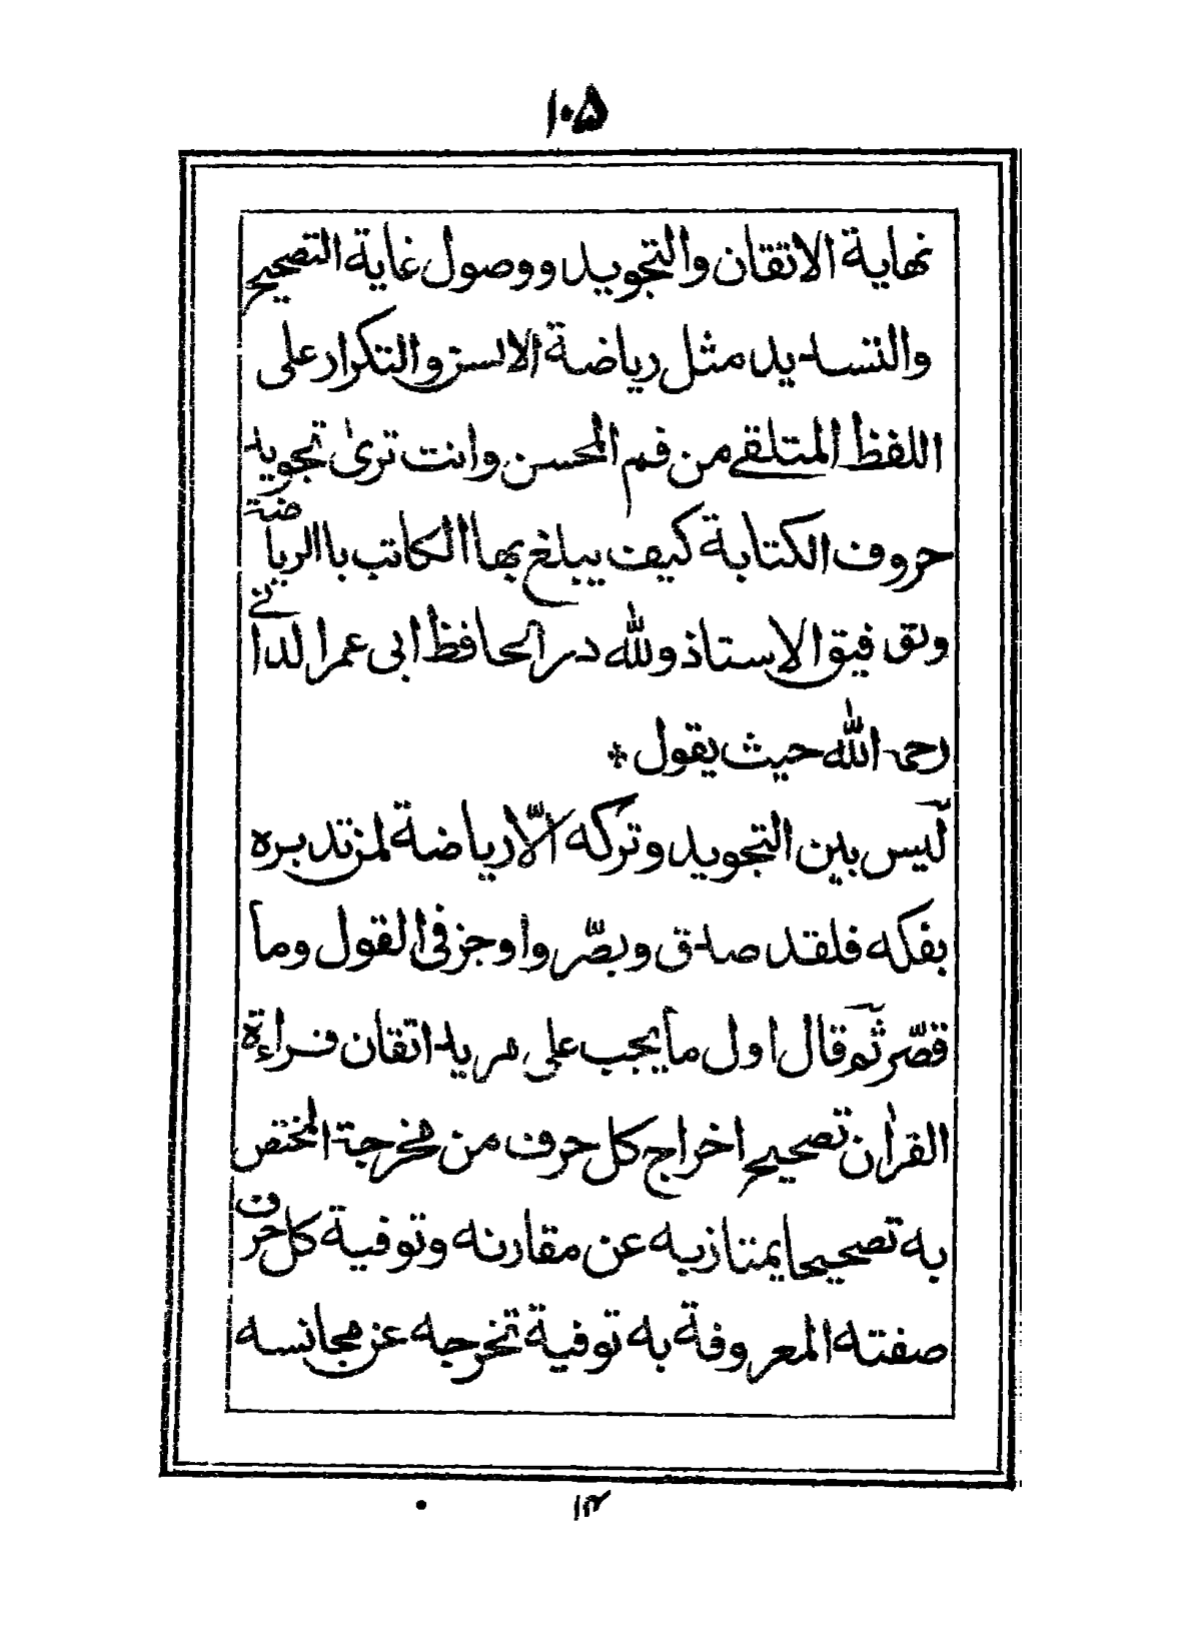 ۱۰۵
نهاية الاتقان والتجويد ووصول غاية التصحيح
والتسديد مثل رياضة الالسن والتكرار على
اللفظ المتلقي من فم المحسن وانت ترىٰ تجويد
حروف الكتابة كيف يبلغ بها الكاتب باالرياضة
وتق فيق الاستاذ ولله در الحافظ ابى عمرا لدانے
رحمہ اللّٰه حيث يقول
لیس بين التجويد وتركه الّا رياضة لمن تدبره
بفكه فلقد صدق وبصّر واوجز فى القول وما
قصّر ثم قال اول ما يجب على مريد اتقان قراءة
القراٰن تصحيح اخراج كل حرف من مخرجة المختص
به تصحيحا يمتازبه عن مقارنه وتوفية كل حرف
صفته المعروفة به توفية تخرجه عن مجانسه
۱۴